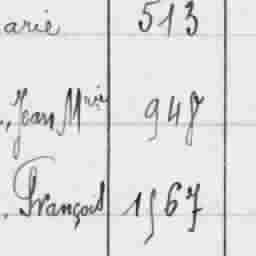 arie 513
Jean Mie 948
François 1567